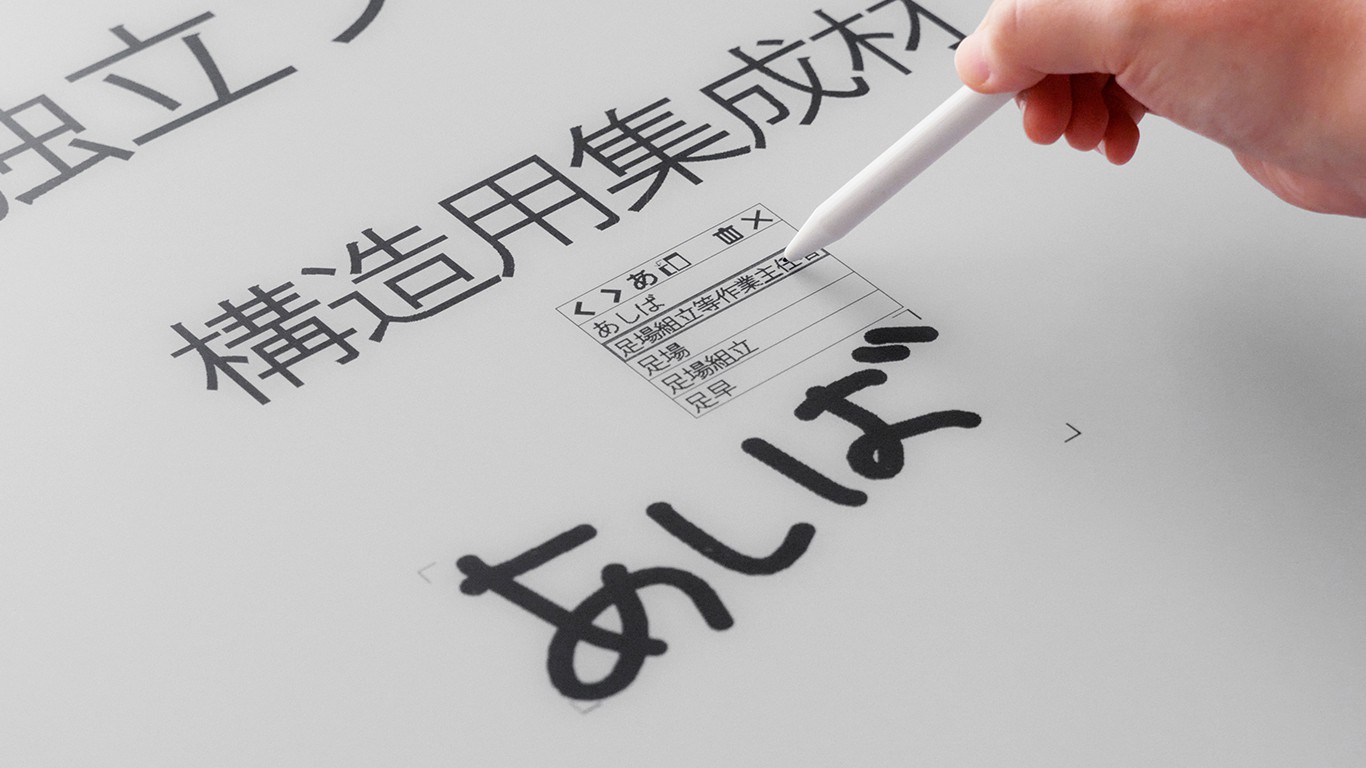 独立
構造用集成材
あ
あしば
足場組立等作業主任
足場
足場組立
足早
あしば